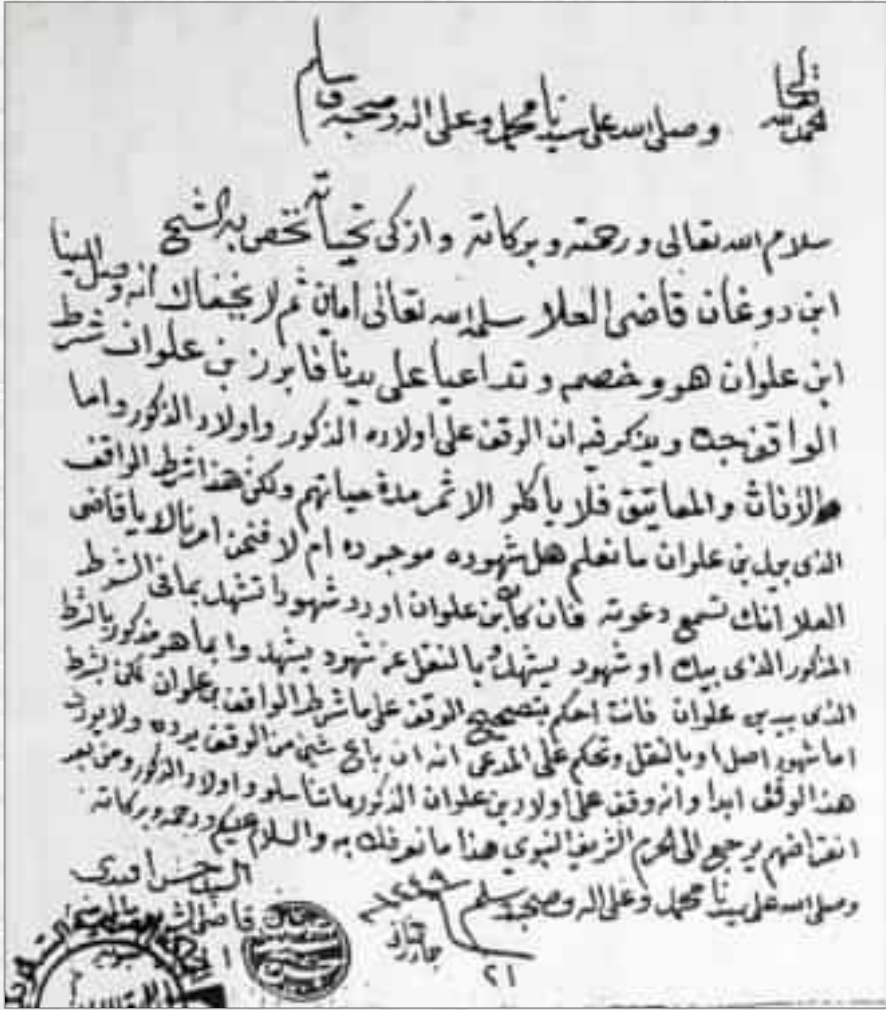 الحمد لله تعالى وصلى الله على سيدنا محمد وعلى اله وصحبه وسلم
سلام الله تعالى ورحمته وبركاته وازكى تحياته نخص به الشيخ
ابن دوغان قاضي العلا سلمه الله تعالى امان ثم لا يخفاك انه وصل الينا
ابن علوان هو وخصم وتداعيا على يدينا فابرز بن علوان شرط
الواقف جده ويذكر فيه ان الوقف على اولاده الذكور واولاد الذكور واما
الاناث والمعاتيق فلا ياكلو الا ثمر مدة حياتهم ولكن هذا شرط الواقف
الذى بيد بن علوان ما نعلم هل شهوده موجوده ام لا فنحن امرنالا يا قاضى
العلا انك تسمع دعوته فان كان بن علوان اورد شهودا تشهد بما فى الشرط
المذكور الذى بيده او شهود يشهدو بالنقل عن شهود يشهدوا بما هو مذكور بالشرط
الذى بيد بن علوان فانت احكم بتصحيح الوقف على ما شرط الواقف بن علوان لكن بشرط
اما شهود اصل او بالنقل وتحكم على المدعى انه ان باع شئ من الوقف يرده ولا يورث
هذا الوقف ابدا وانه وقف على اولاد بن علوان الذكور ما تناسلو واولاد الذكور ومن بعد
انقراضهم يرجع الى الحرم الشريف النبوي هذا ما نعرفك به والسلام عليكم ورحمة وبركاته
وصلى الله على سيدنا محمد وعلى اله وصحبه وسلم
٢١
١٢٤٩
السيد حسن افندى
قاضى